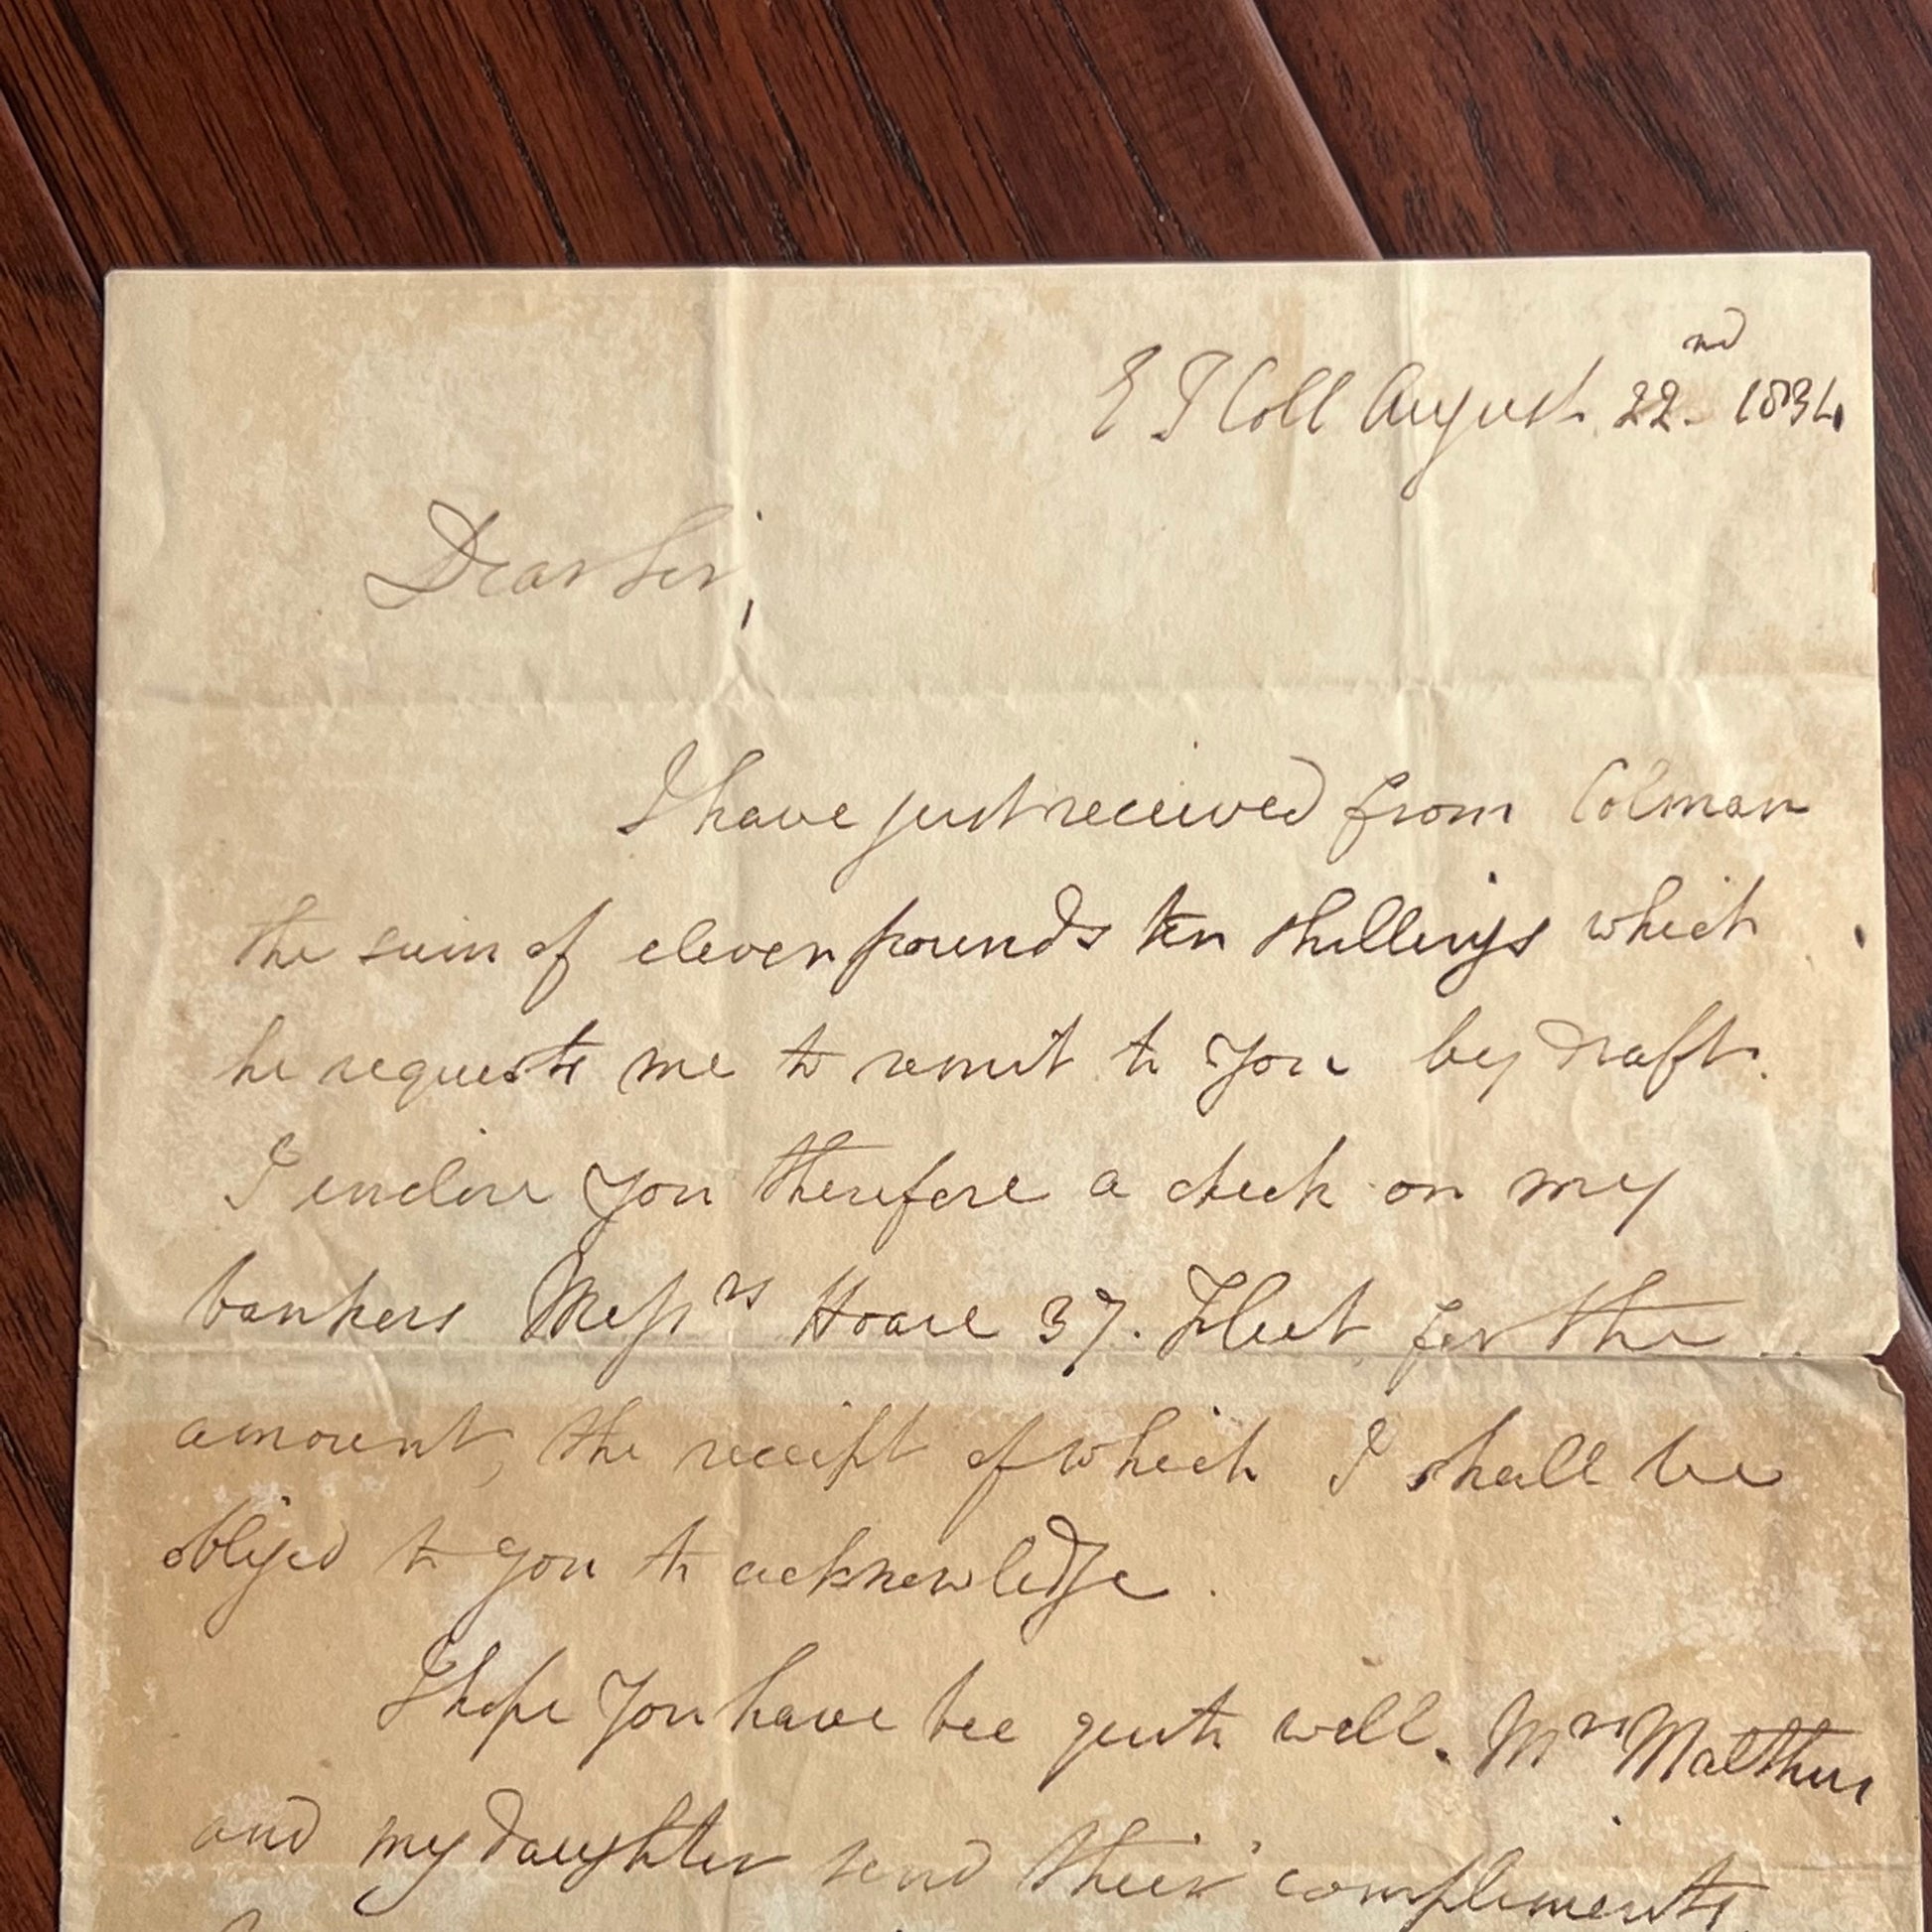 E I Coll August 22nd 1834
Dear Sir,
I have just received from Colman
the sum of eleven pounds ten shillings which
he requests me to remit to you by draft.
I enclose you therefore a check on my
bankers Messrs Hoare 37. Fleet for the
amount, the receipt of which I shall be
obliged to you to acknowledge.
I hope you have bee quite well. Mrs Malthus
and my daughter send their compliments